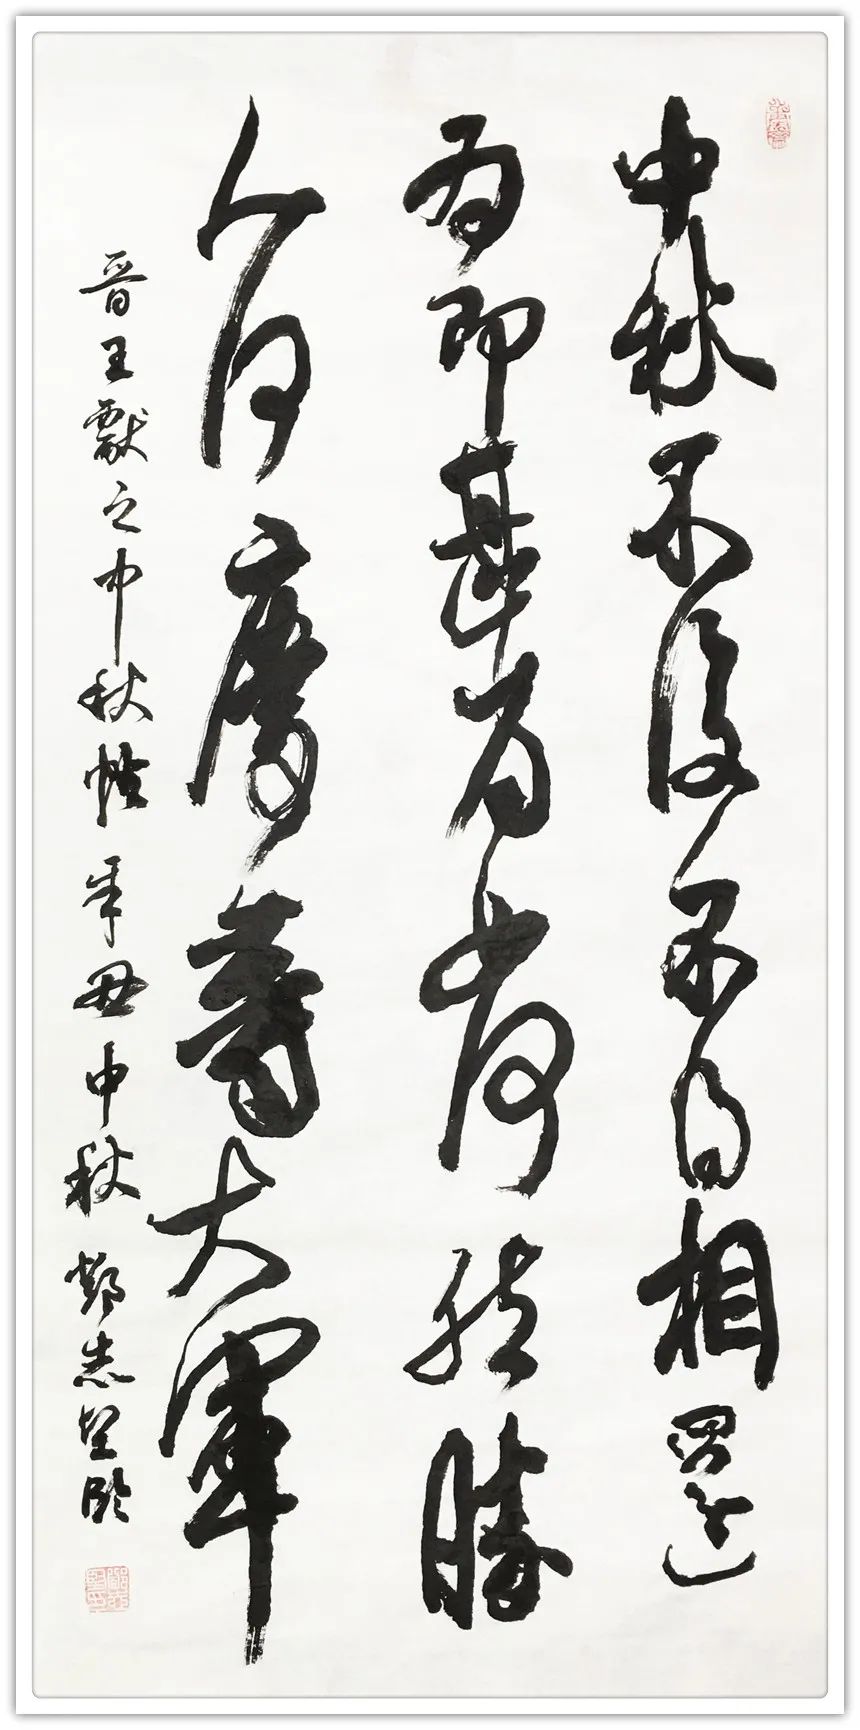 中秋不復不得相還
為即甚省如何然勝
人何慶等大軍
晉王獻之中秋帖 辛丑中秋 志臨